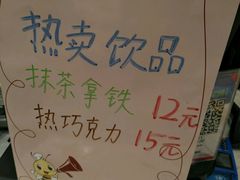 热卖饮品
抹茶拿铁 12元
热巧克力 15元